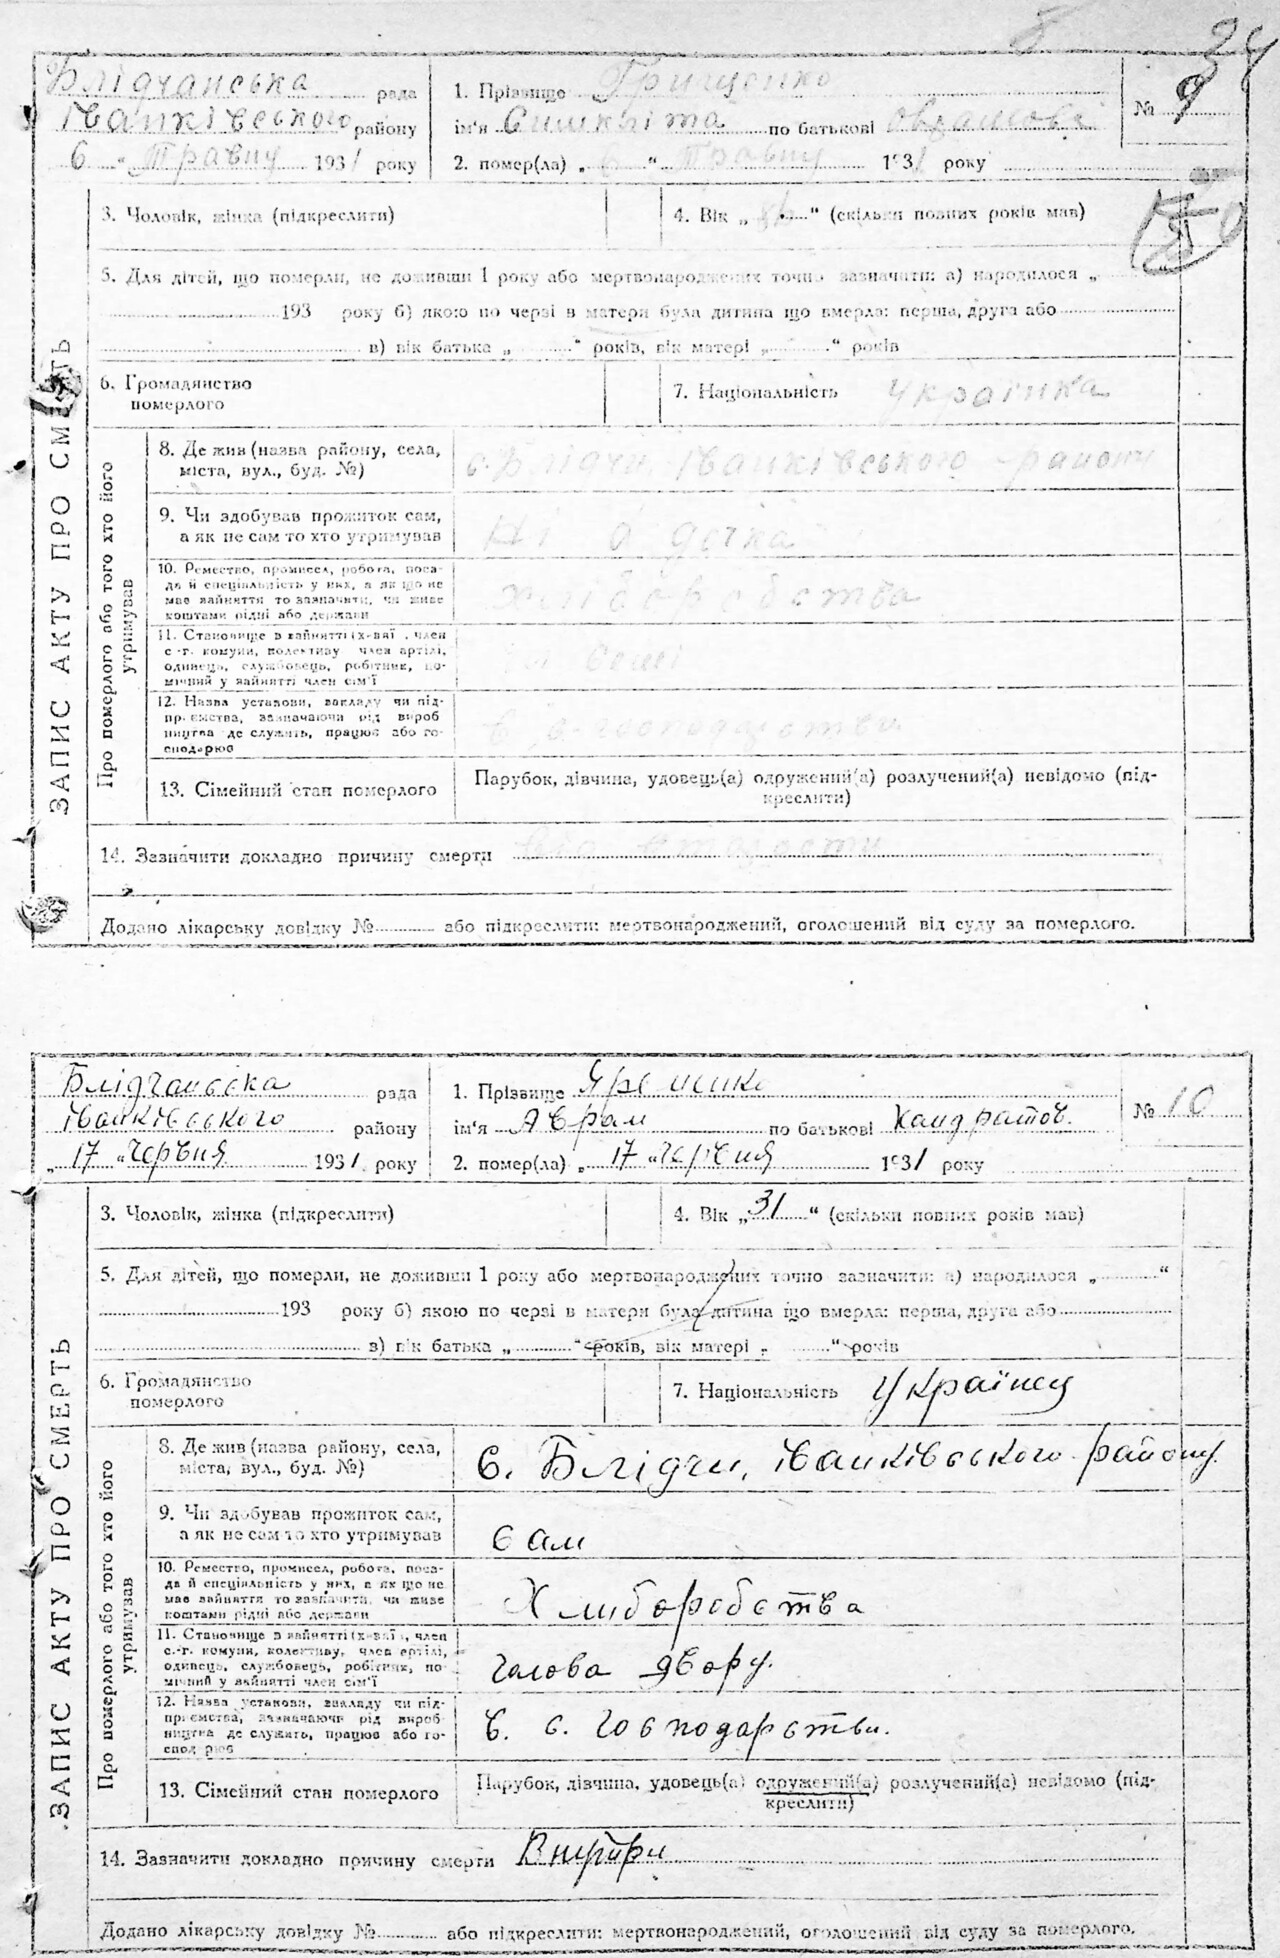 34
Блідчанська рада
Іванківського району
6 " Травну 1931 року
1. Прізвище Грищенко
ім'я по батькові
2. помер(ла) „ 6 " Травну 1931 року
№ 9
3. Чоловік, жінка (підкреслити)
4. Вік „ " (скільки повних років мав)
5. Для дітей, що померли, не доживши 1 року або мертвонароджених точно зазначити: а) народилося „
193 року б) якою по черзі в матери була дитина що вмерла: перша, друга або
в) вік батька „ " років, вік матері „ " років
6. Громадянство
померлого
7. Національність Українка
ЗАПИС АКТУ ПРО СМЕРТЬ
Про померлого або того хто його
утримував
8. Де жив (назва району, села,
міста, вул., буд. №)
с. Блідчи Іванківського району
9. Чи здобував прожиток сам,
а як не сам то хто утримував
Ні
10. Ремество, промисел, робота, поса-
да й спеціяльність у них, а як що не
має зайняття то зазначити, чи живе
коштами рідні або держави
хліборобства
11. Становище в зайнятті (х-ваї , член
с.-г. комуни, колективу член артілі,
одинець, службовець, робітник, по-
мічний у зайнятті член сім'ї
12. Назва установи, закладу чи під-
приємства, зазначаючи рід вироб
ництва де служить, працює або го-
сподарює
в с. господарстви
13. Сімейний стан померлого
Парубок, дівчина, удовець(а) одружений(а) розлучений(а) невідомо (під-
креслити)
14. Зазначити докладно причину смерти від старости
Додано лікарську довідку № або підкреслити: мертвонароджений, оголошений від суду за померлого.
Блідчанська рада
Іванківського району
„ 17 " Червня 1931 року
1. Прізвище Яременко
ім'я Аврам по батькові Хандратов.
2. помер(ла) „ 17 " Червня 1931 року
№ 10
3. Чоловік, жінка (підкреслити)
4. Вік „ 31 " (скільки повних років мав)
5. Для дітей, що померли, не доживши 1 року або мертвонароджених точно зазначити: а) народилося „ "
193 року б) якою по черзі в матери була дитина що вмерла: перша, друга або
в) вік батька „ " років, вік матері „ " років
6. Громадянство
померлого
7. Національність Українец
ЗАПИС АКТУ ПРО СМЕРТЬ
Про померлого або того хто його
утримував
8. Де жив (назва району, села,
міста, вул., буд. №)
с. Блідчи, Іванківського району.
9. Чи здобував прожиток сам,
а як не сам то хто утримував
сам
10. Ремество, промисел, робота, поса-
да й спеціяльність у них, а як що не
має зайняття то зазначити, чи живе
коштами рідні або держави
Хлиборобства
11. Становище в зайнятті (х-ваї , член
с.-г. комуни, колективу, член артілі,
одинець, службовець, робітник, по-
мічний у зайнятті член сім'ї
голова двору.
12. Назва установи, закладу чи під-
приємства, зазначаючи рід вироб-
ництва де служить, працює або го-
сподарює
в. с. господарстви.
13. Сімейний стан померлого
Парубок, дівчина, удовець(а) одружений(а) розлучений(а) невідомо (під-
креслити)
14. Зазначити докладно причину смерти
Додано лікарську довідку № або підкреслити: мертвонароджений, оголошений від суду за померлого.